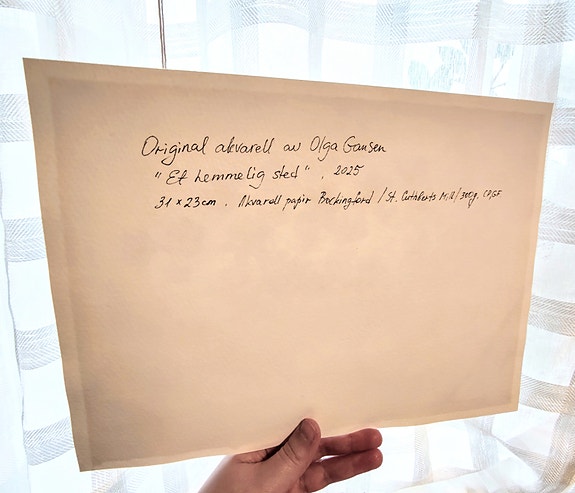 Original akvarell av Olga Gansen
"Et hemmelig sted", 2025
31 x 23 cm. Akvarell papir Bockingford / St. Cuthberts Mill / 300g.